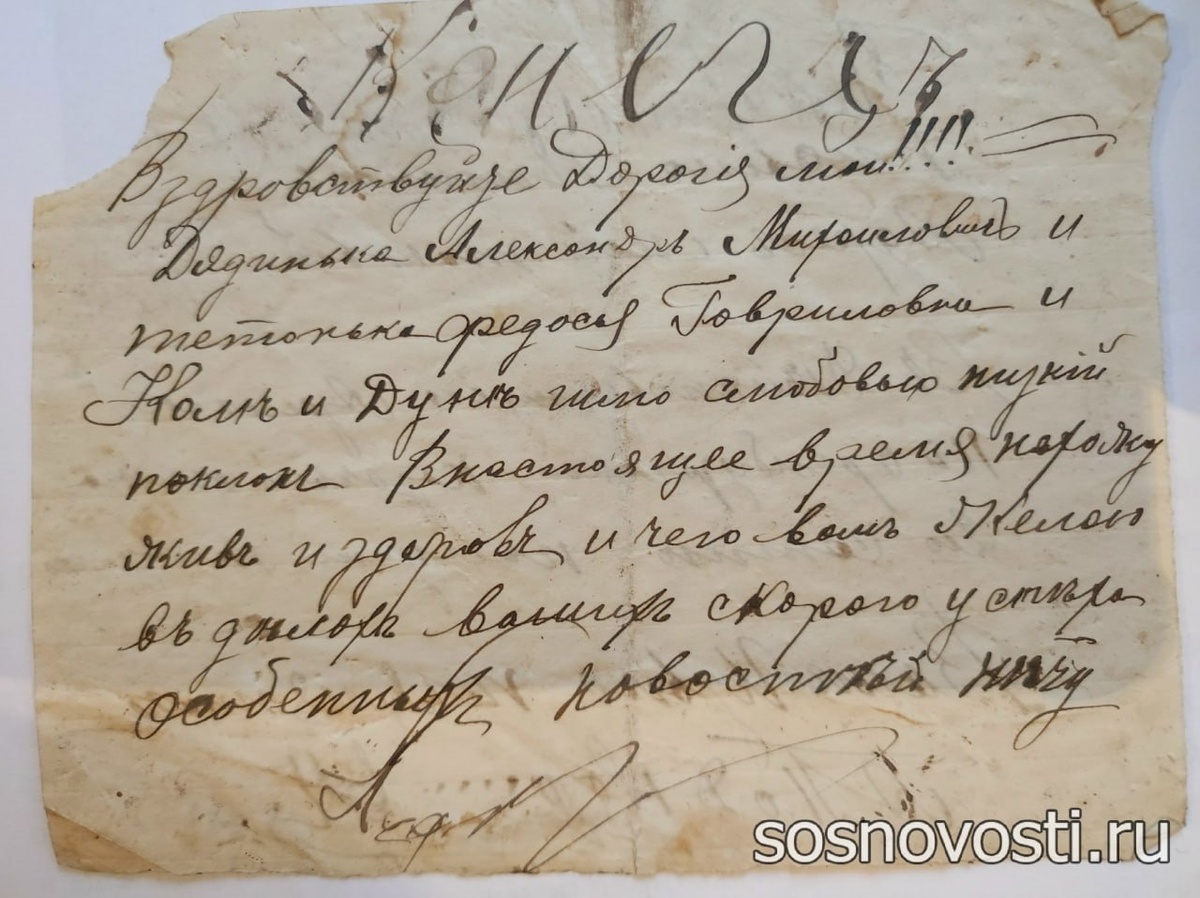 Вздровствуйте Дорогія мои!!!!
Дядинька Александръ Михаиловичъ и
тетонька федосья Гавриловна и
Колѣ и Дунѣ шлю слюбовью низкій
поклонъ Внастоящее время нахожу
живъ и здоровъ и чего вамъ Желаю
въ дѣлахъ вашихъ скорого успѣха
особенныхъ новостѣй нѣту
sosnovosti.ru